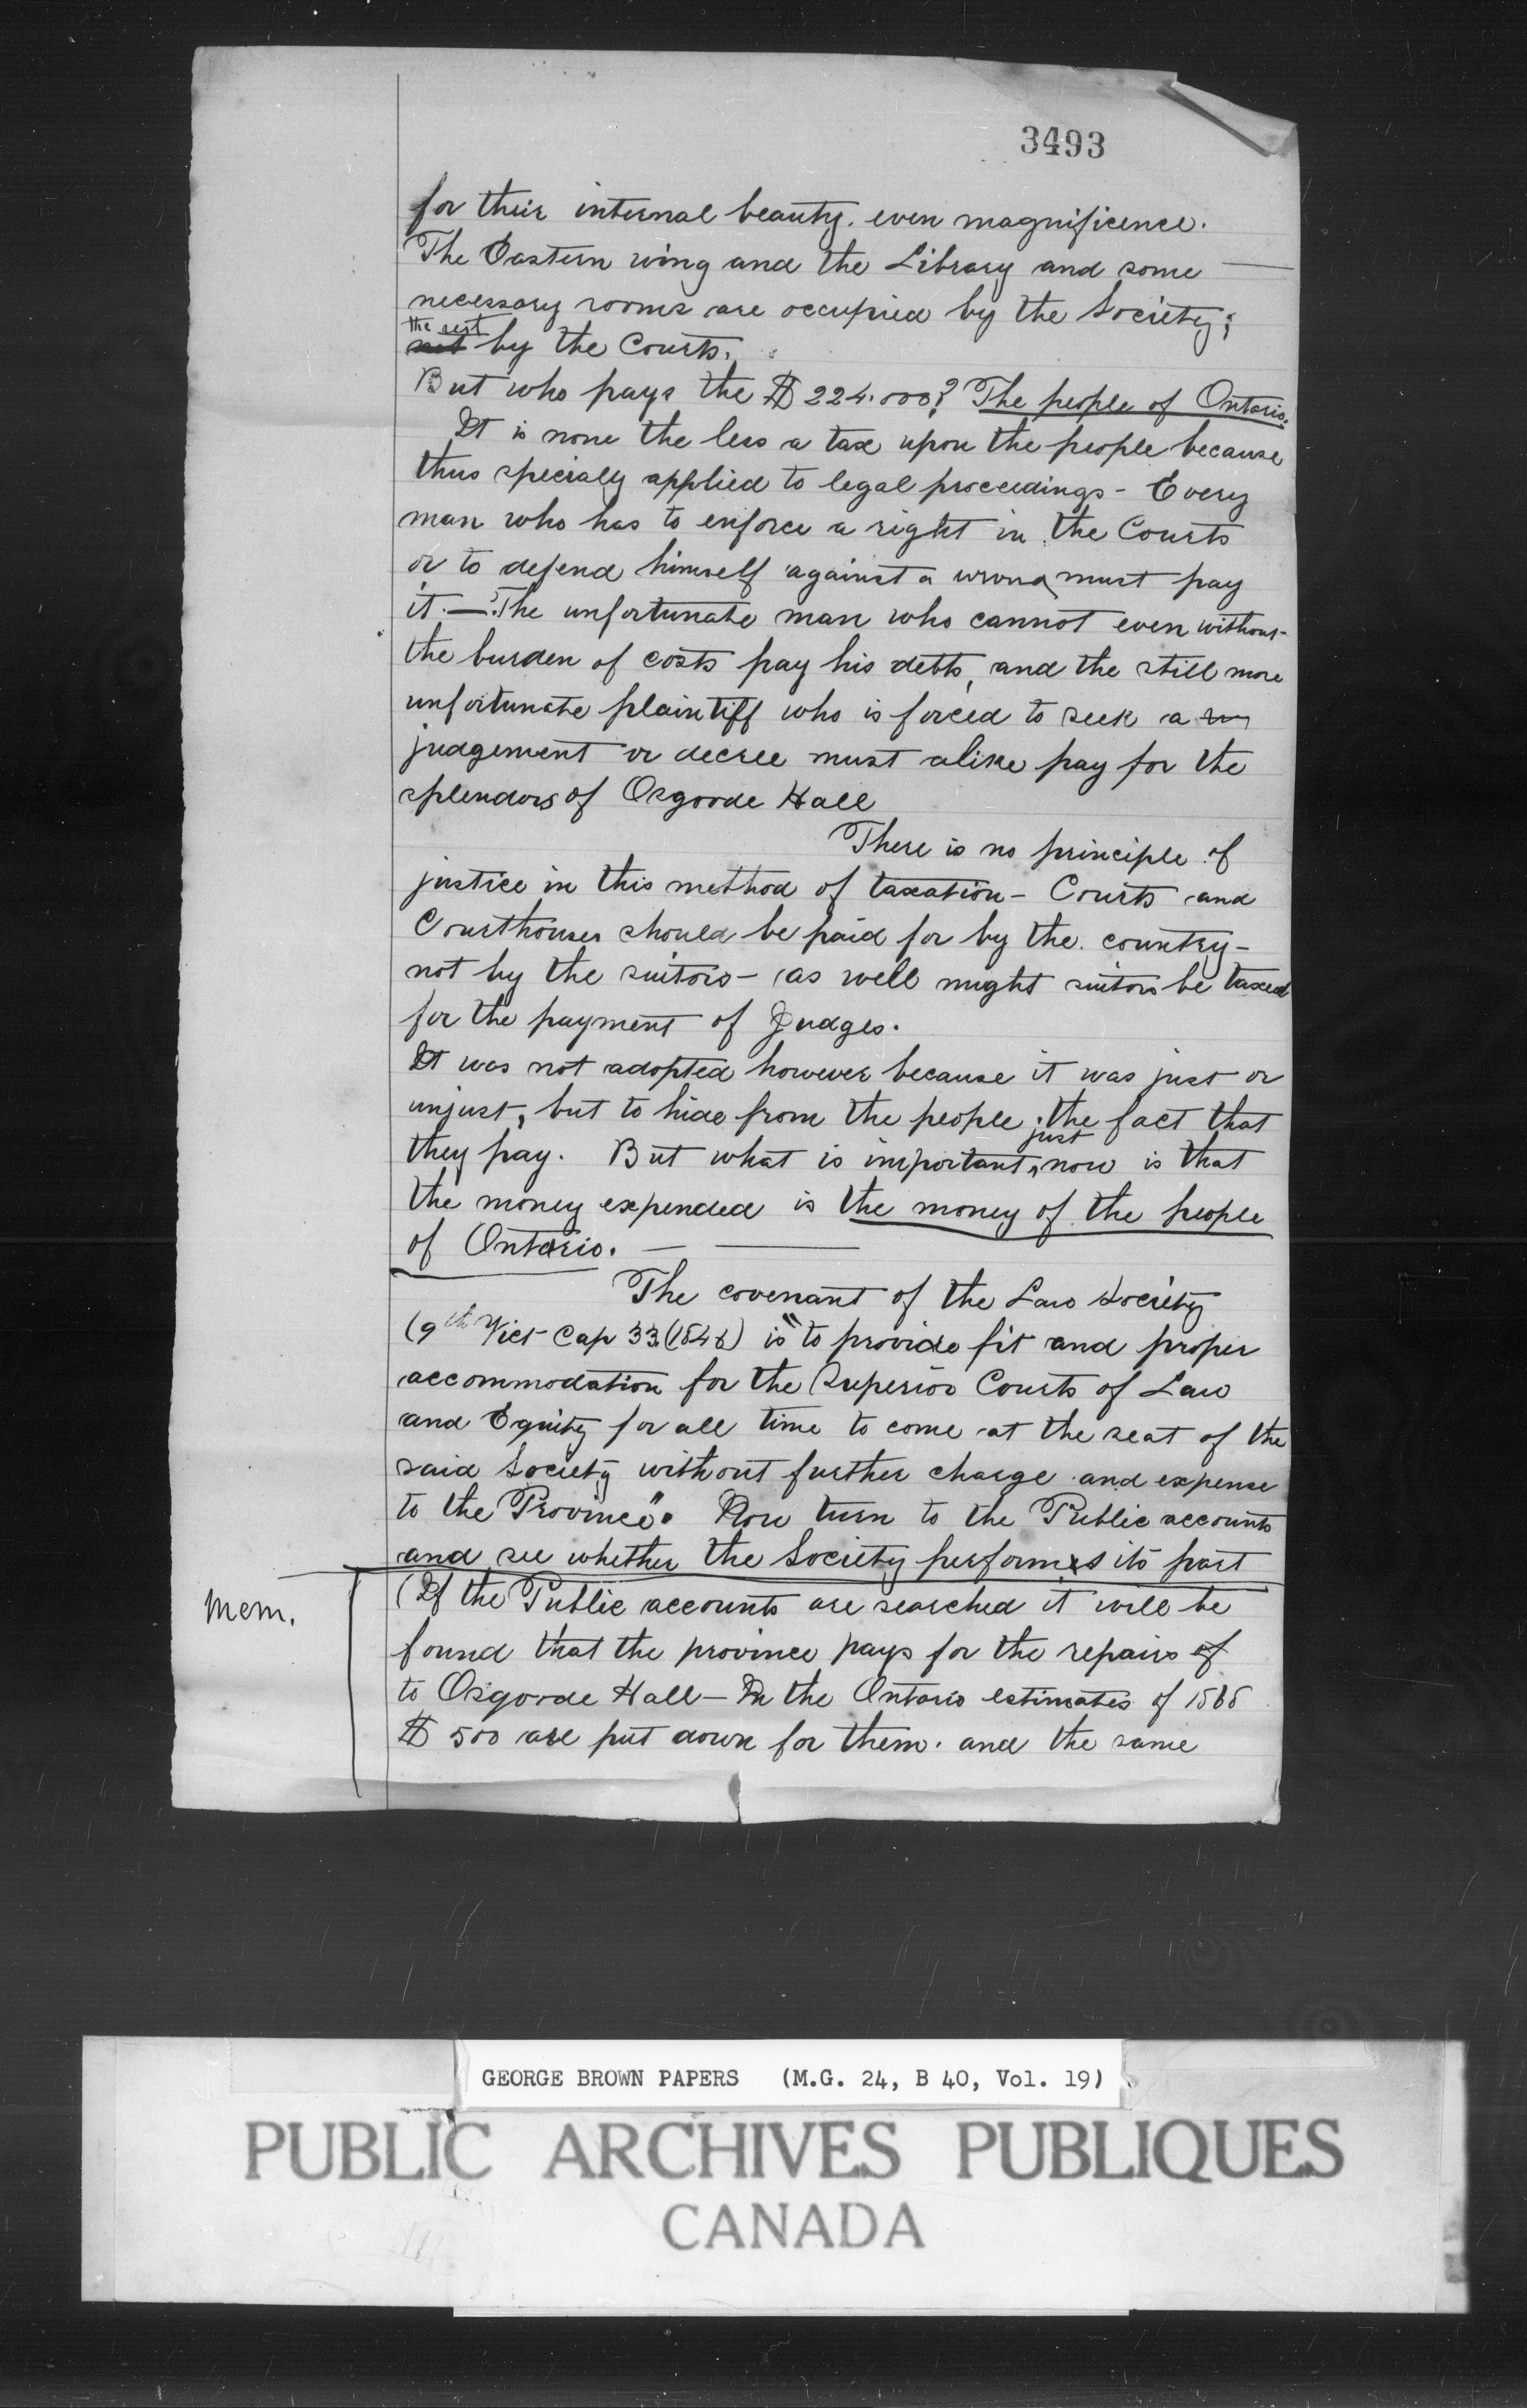 3493
for their internal beauty. even magnificence.
The Eastern wing and the Library and some
necessary rooms are occupied by the Society;
the rest
by the Courts.
But who pays the $224.000? The people of Ontario.
It is none the less a tax upon the people because
thus specially applied to legal proceedings - Every
man who has to enforce a right in the Courts
or to defend himself against a wrong must pay
it. — The unfortunate man who cannot even without
the burden of costs pay his debts, and the still more
unfortunate plaintiff who is forced to seek a
judgement or decree must alike pay for the
splendors of Osgoode Hall
There is no principle of
justice in this method of taxation - Courts and
Courthouses should be paid for by the country -
not by the suitors - as well might suitors be taxed
for the payment of Judges.
It was not adopted however because it was just or
unjust, but to hide from the people the fact that
just
they pay. But what is important, now is that
the money expended is the money of the people
of Ontario. —
The covenant of the Law Society
(9th Vict Cap 33 (1846) is "to provide fit and proper
accommodation for the Superior Courts of Law
and Equity for all time to come at the seat of the
said Society without further charge and expense
to the Province". Now turn to the Public accounts
and see whether the Society performs its part
Mem.
(If the Public accounts are searched it will be
found that the province pays for the repairs of
to Osgoode Hall — In the Ontario estimates of 1868
$500 are put down for them. and the same
GEORGE BROWN PAPERS (M.G. 24, B 40, Vol. 19)
PUBLIC ARCHIVES PUBLIQUES
CANADA